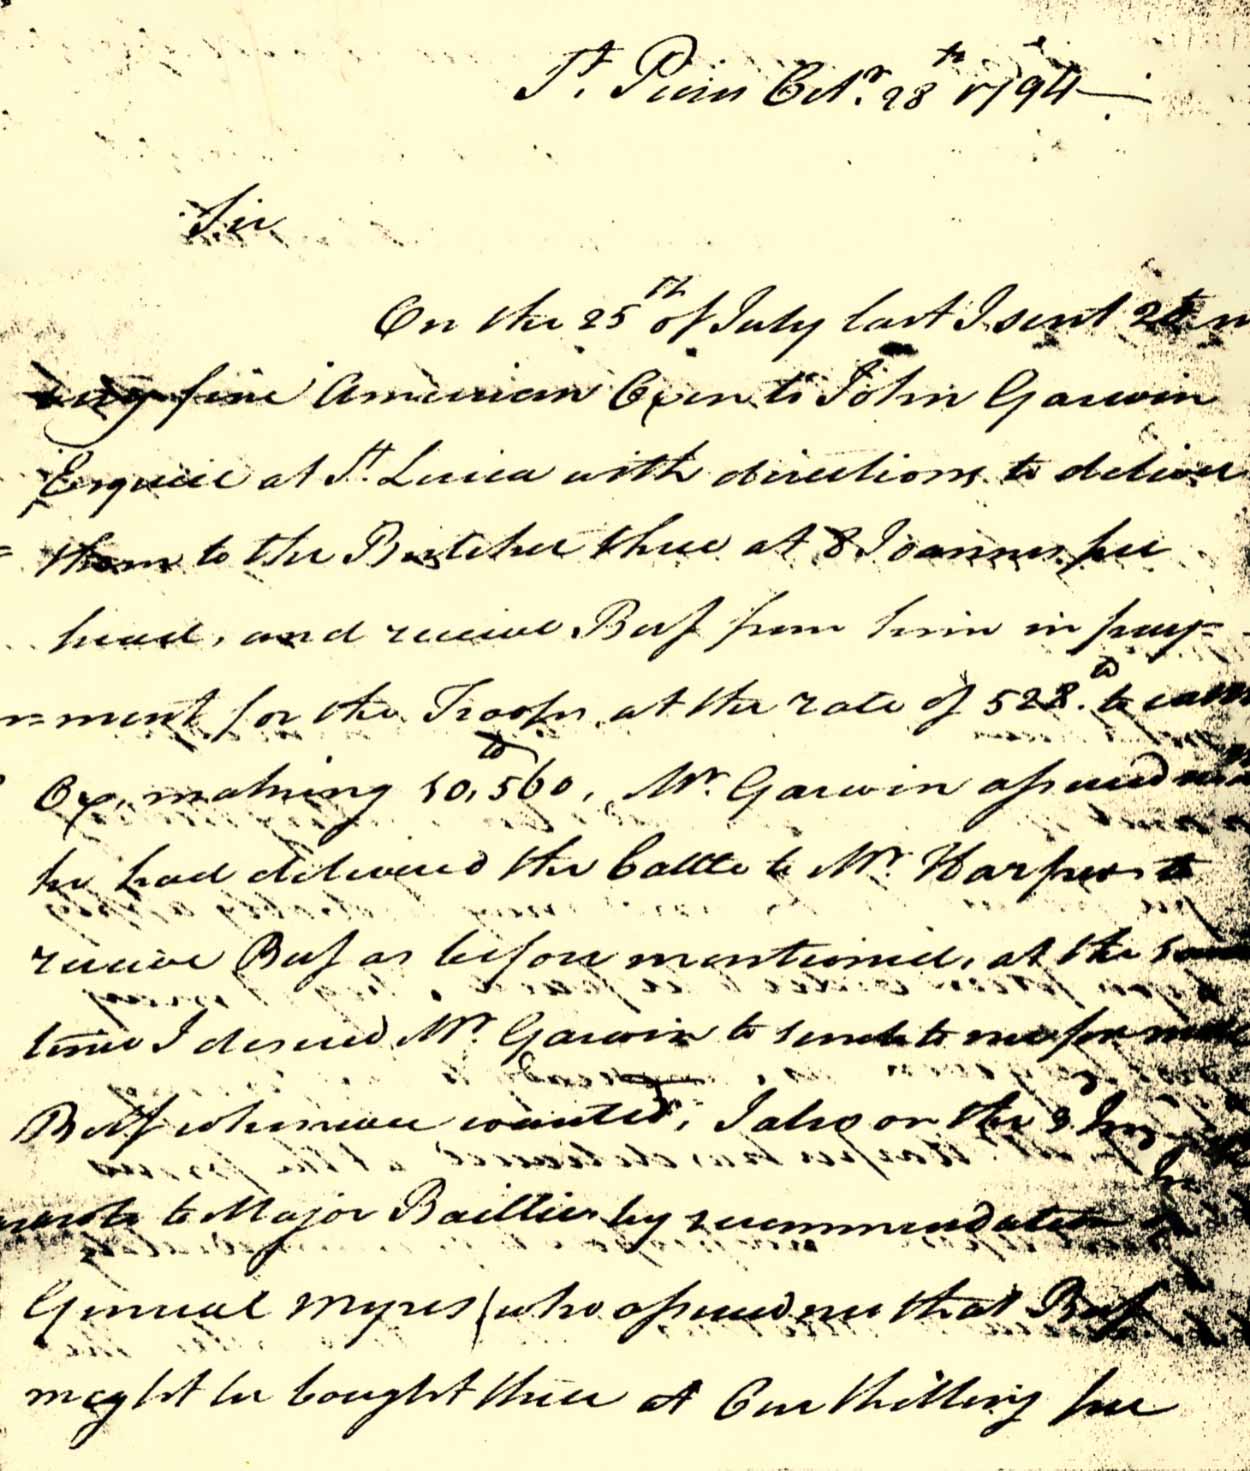 St. Piere Octr. 28th 1794
Sir
On the 25th of July last I sent 20
very fine American Oxen to John Garwin
Esquire at St. Lucia with directions to deliver
them to the Butcher there at 8 Joannes per
head, and receive Beef from him in pay=
=ment for the Troops, at the rate of 528. lb to each
Ox, making 10,560 lb, Mr. Garwin assured me
he had delivered the Cattle to Mr. Harper to
receive Beef as before mentioned, at the same
time I desired Mr. Garwin to send to me for more
Beef whenever wanted, I also on the 3d
wrote to Major Baillie by recommendation of
General Myres (who assured me that Beef
might be bought there at One Shilling per